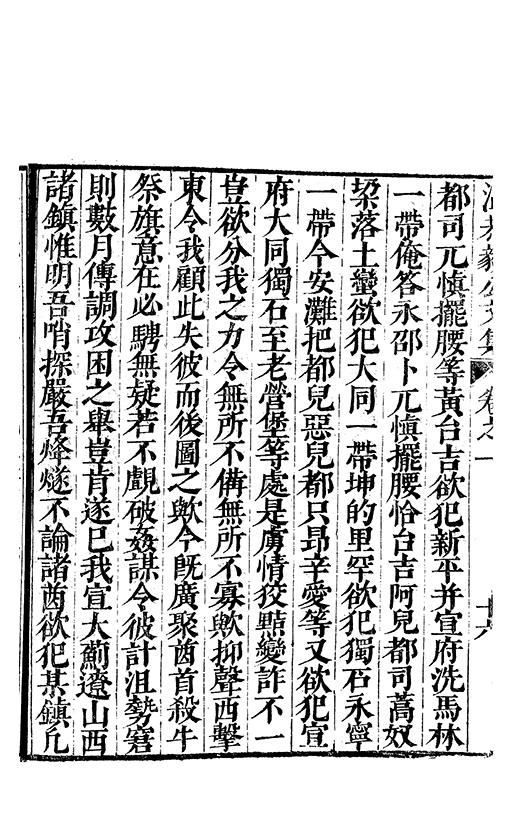 都司兀慎擺腰等黃台吉欲犯新平并宣府洗馬林
一帶俺答永邵卜兀慎擺腰恰台吉阿兒都司蒿奴
梁落土蠻欲犯大同一帶坤的里罕欲犯獨石永寧
一帶今安灘把都兒惡兒都只昂辛愛等又欲犯宣
府大同獨石至老營堡等處是虜情狡黠變詐不一
豈欲分我之力令無所不備無所不寡歟抑聲西擊
東令我顧此失彼而後圖之歟今旣廣聚酋首殺牛
祭旗意在必騁無疑若不覰破姦謀令彼計沮勢窘
則數月傳調攻困之舉豈肯遂已我宣大薊遼山西
諸鎮惟明吾哨探嚴吾烽燧不論諸酋欲犯某鎮凢
卷之一
十六